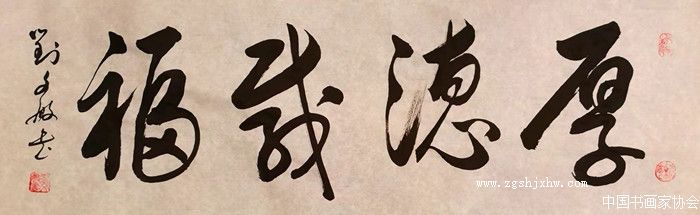 厚德载福
www.zgshjxhw.com
中国书画家协会